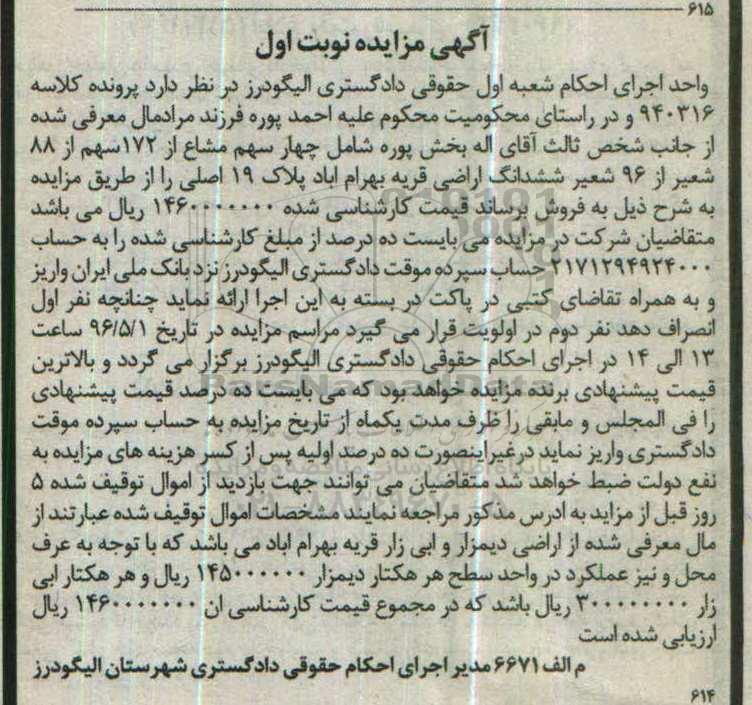 ۶۱۵
آگهی مزایده نوبت اول
واحد اجرای احکام شعبه اول حقوقی دادگستری الیگودرز در نظر دارد پرونده کلاسه
۹۴۰۳۱۶ و در راستای محکومیت محکوم علیه احمد پوره فرزند مرادمال معرفی شده
از جانب شخص ثالث آقای اله بخش پوره شامل چهار سهم مشاع از ۱۷۲سهم از ۸۸
شعیر از ۹۶ شعیر ششدانگ اراضی قریه بهرام اباد پلاک ۱۹ اصلی را از طریق مزایده
به شرح ذیل به فروش برساند قیمت کارشناسی شده ۱۴۶۰۰۰۰۰۰۰ ریال می باشد
متقاضیان شرکت در مزایده می بایست ده درصد از مبلغ کارشناسی شده را به حساب
۲۱۷۱۲۹۴۹۲۴۰۰۰ حساب سپرده موقت دادگستری الیگودرز نزد بانک ملی ایران واریز
و به همراه تقاضای کتبی در پاکت در بسته به این اجرا ارائه نماید چنانچه نفر اول
انصراف دهد نفر دوم در اولویت قرار می گیرد مراسم مزایده در تاریخ ۹۶/۵/۱ ساعت
۱۳ الی ۱۴ در اجرای احکام حقوقی دادگستری الیگودرز برگزار می گردد و بالاترین
قیمت پیشنهادی برنده مزایده خواهد بود که می بایست ده درصد قیمت پیشنهادی
را فی المجلس و مابقی را ظرف مدت یکماه از تاریخ مزایده به حساب سپرده موقت
دادگستری واریز نماید درغیراینصورت ده درصد اولیه پس از کسر هزینه های مزایده به
نفع دولت ضبط خواهد شد متقاضیان می توانند جهت بازدید از اموال توقیف شده ۵
روز قبل از مزاید به ادرس مذکور مراجعه نمایند مشخصات اموال توقیف شده عبارتند از
مال معرفی شده از اراضی دیمزار و ابی زار قریه بهرام اباد می باشد که با توجه به عرف
محل و نیز عملکرد در واحد سطح هر هکتار دیمزار ۱۴۵۰۰۰۰۰۰ ریال و هر هکتار ابی
زار ۳۰۰۰۰۰۰۰۰ ریال باشد که در مجموع قیمت کارشناسی ان ۱۴۶۰۰۰۰۰۰۰ ریال
ارزیابی شده است
م الف ۶۶۷۱ مدیر اجرای احکام حقوقی دادگستری شهرستان الیگودرز
۶۱۴